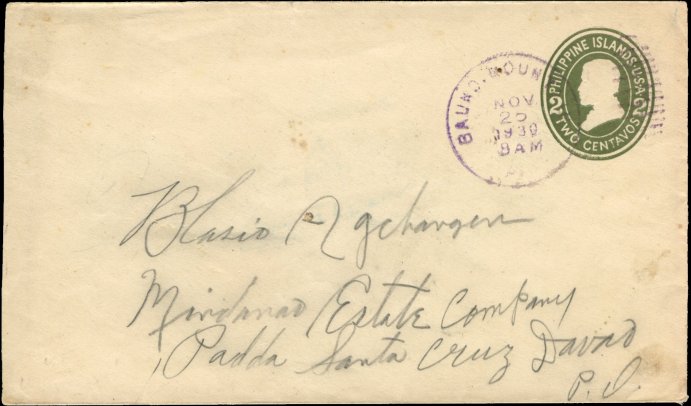 PHILIPPINE ISLANDS·U·S·A
2 2
TWO CENTAVOS
NOV
25
1930
8AM
Blasio
Mindanao Estate Company
Padda Santa Cruz Davao
P. I.